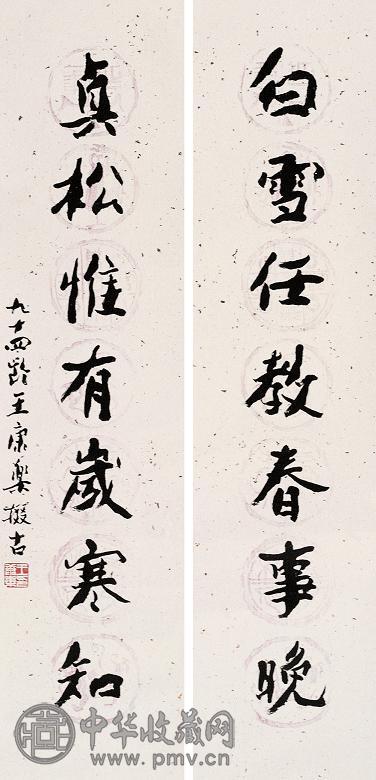 白雪任教春事晚
真松惟有歲寒知
九十四齡王康樂掇古
中华收藏网
www.pmv.cn